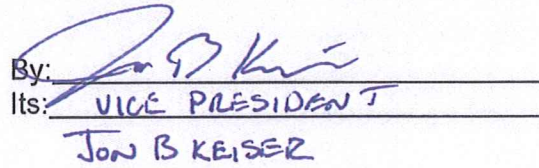 By: Jon B Keiser
Its: VICE PRESIDENT
JON B KEISER